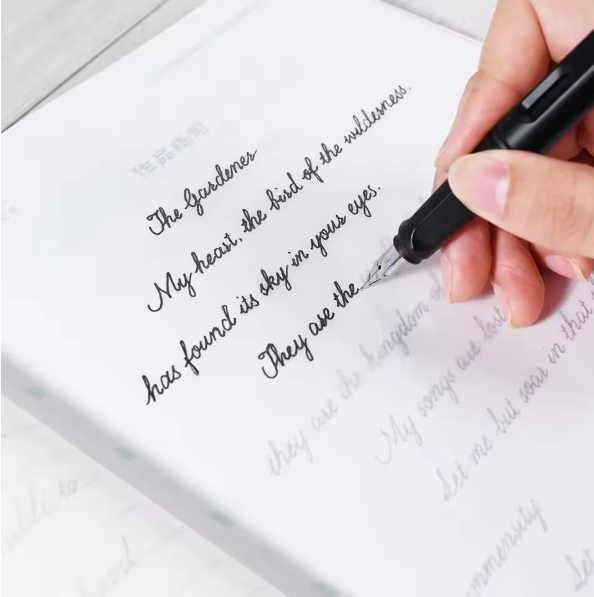 作品练习
The Gardenes
My heart, the bird of the wilderness.
has found its sky in your eyes.
They are the
they are the kingdom of
My songs are lost
Let me but soar in that
immensity
Let